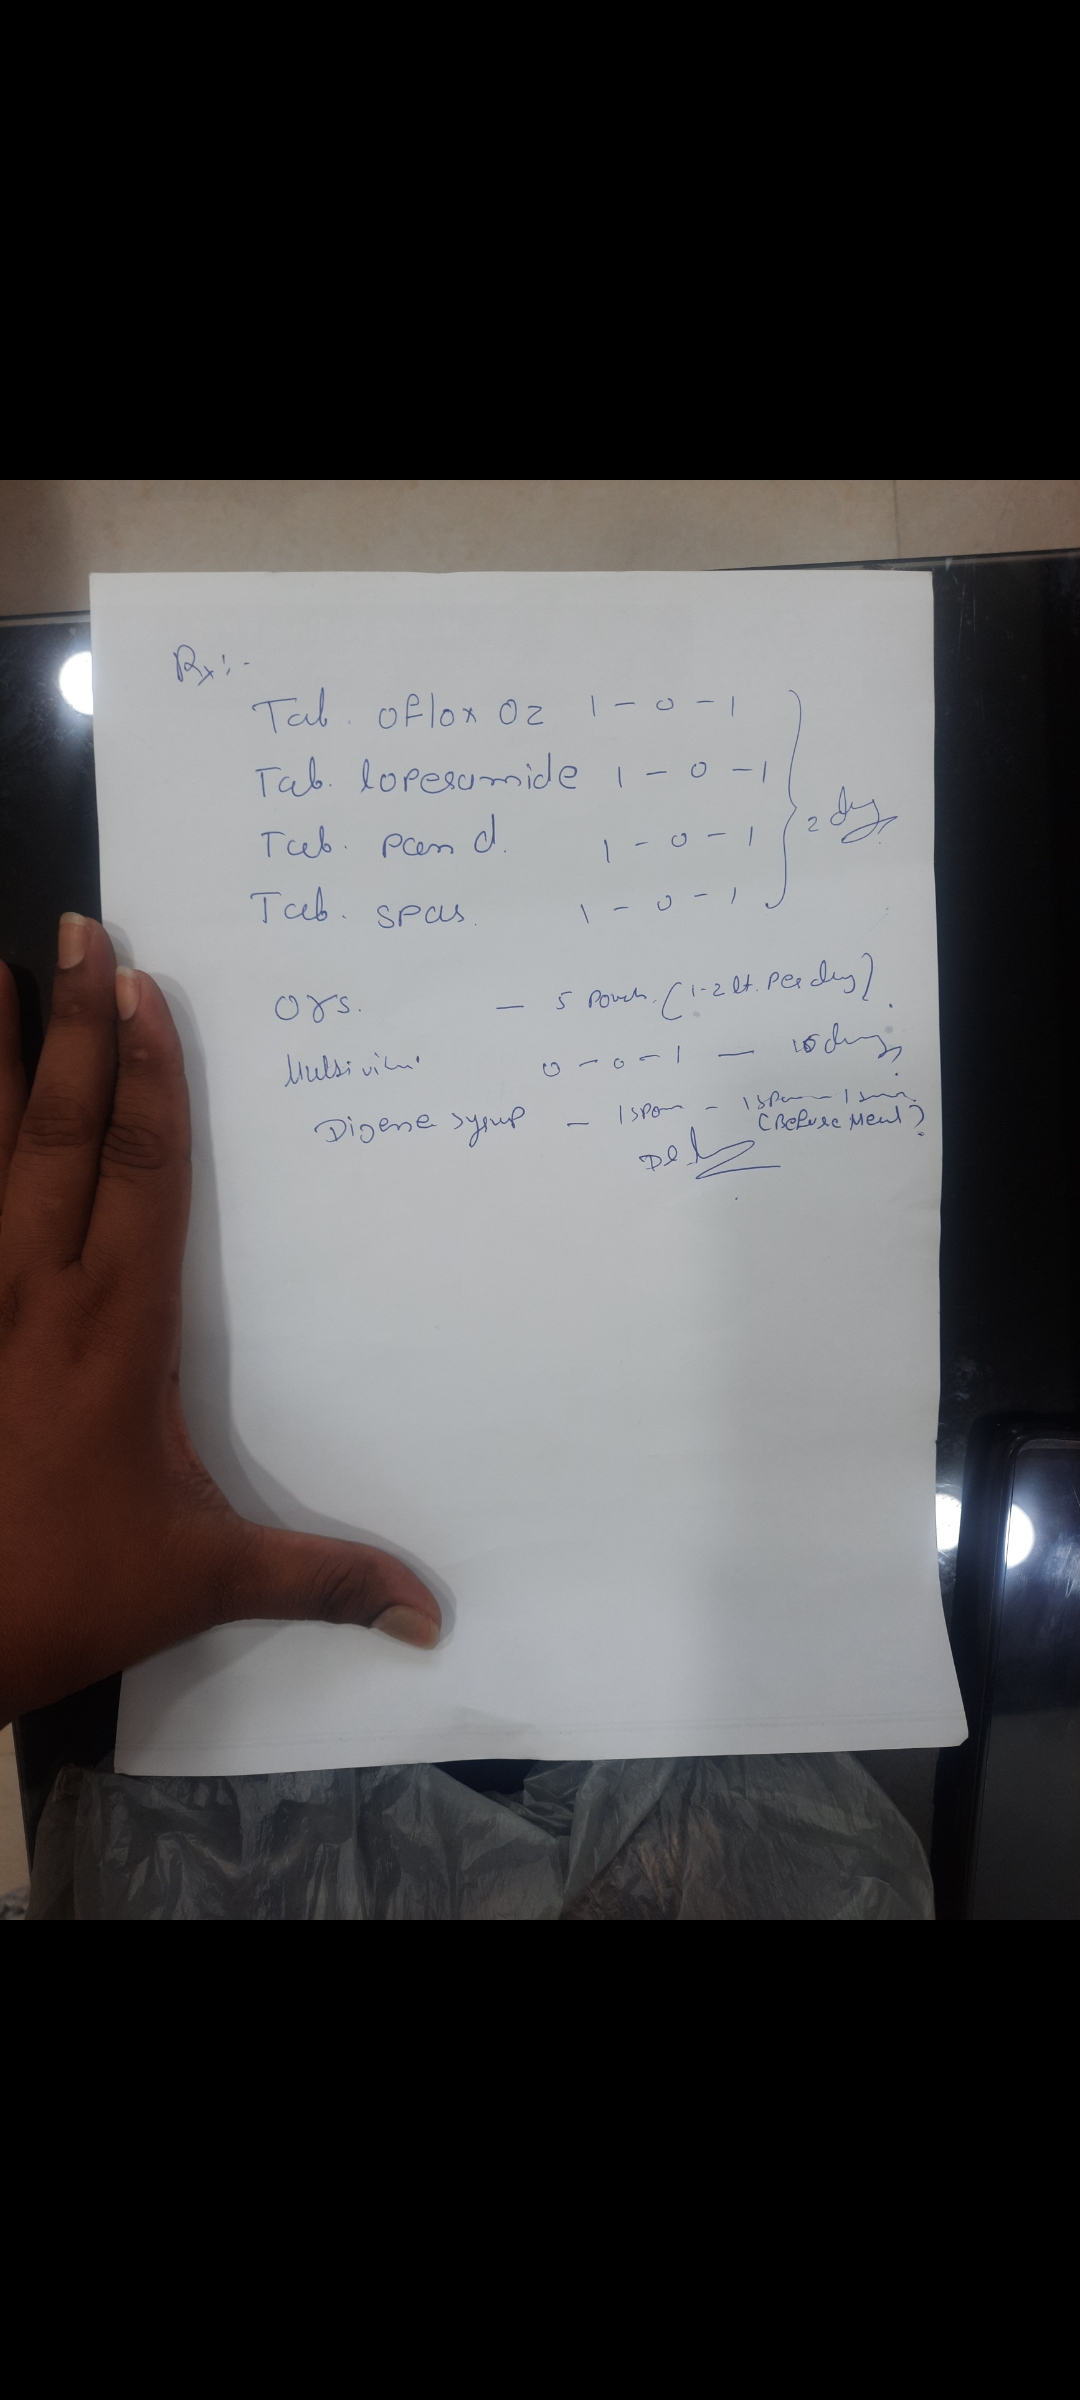 Rx:-
Tab. oflox OZ 1 - 0 - 1
Tab. loperamide 1 - 0 - 1
Tab. pan d. 1 - 0 - 1
Tab. spas. 1 - 0 - 1
2 day
ors. - 5 Pouch. (1-2 lt. Per day).
Multivim 0 - 0 - 1 - day
Digene syrup - 1 spon - 1 spon - 1
(Before Meal)